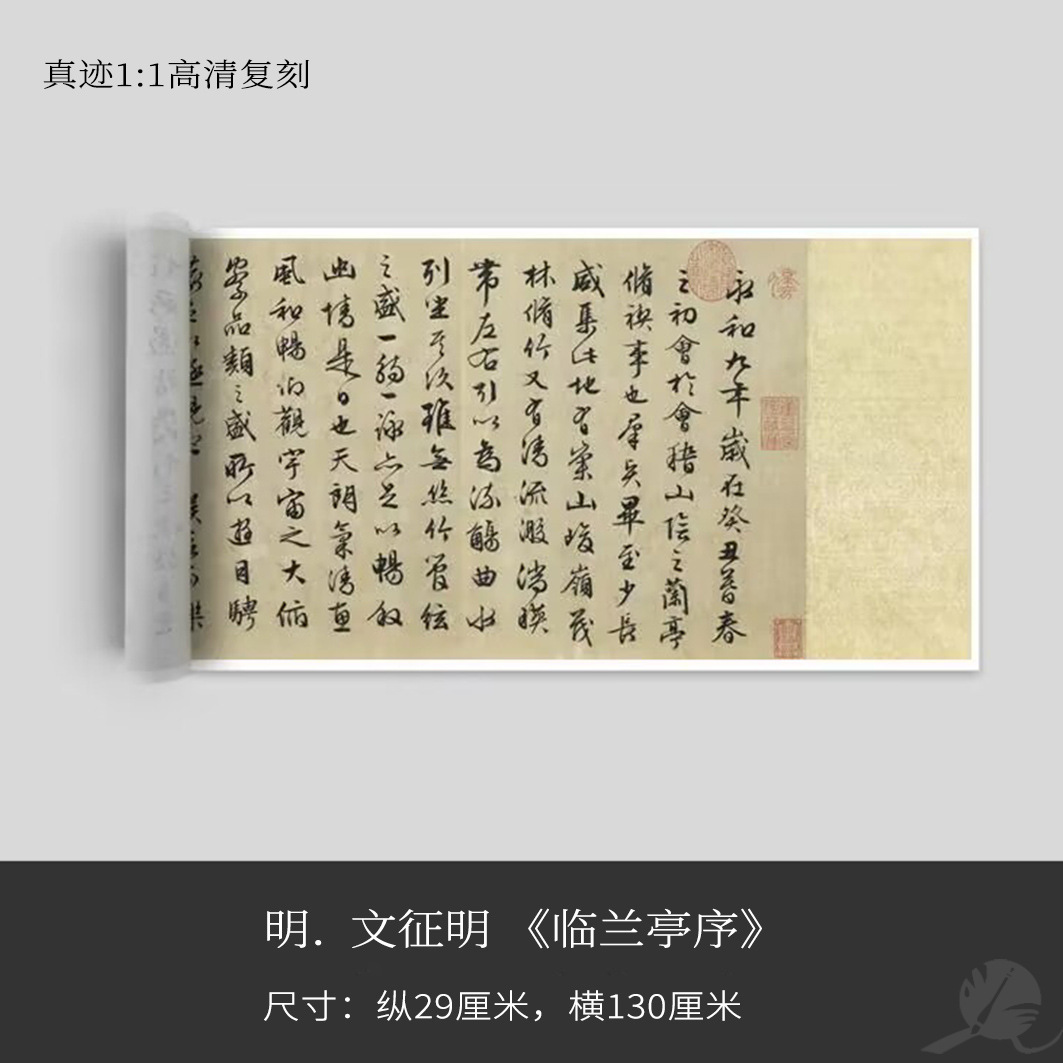 真迹1:1高清复刻
永和九年歲在癸丑暮春
之初會於會稽山陰之蘭亭
脩禊事也羣賢畢至少長
咸集此地有崇山峻嶺茂
林脩竹又有清流激湍暎
帶左右引以為流觴曲水
列坐其次雖無絲竹管絃
之盛一觴一詠亦足以暢叙
幽情是日也天朗氣清惠
風和暢仰觀宇宙之大俯
察品類之盛所以遊目騁
明.文征明《临兰亭序》
尺寸：纵29厘米，横130厘米